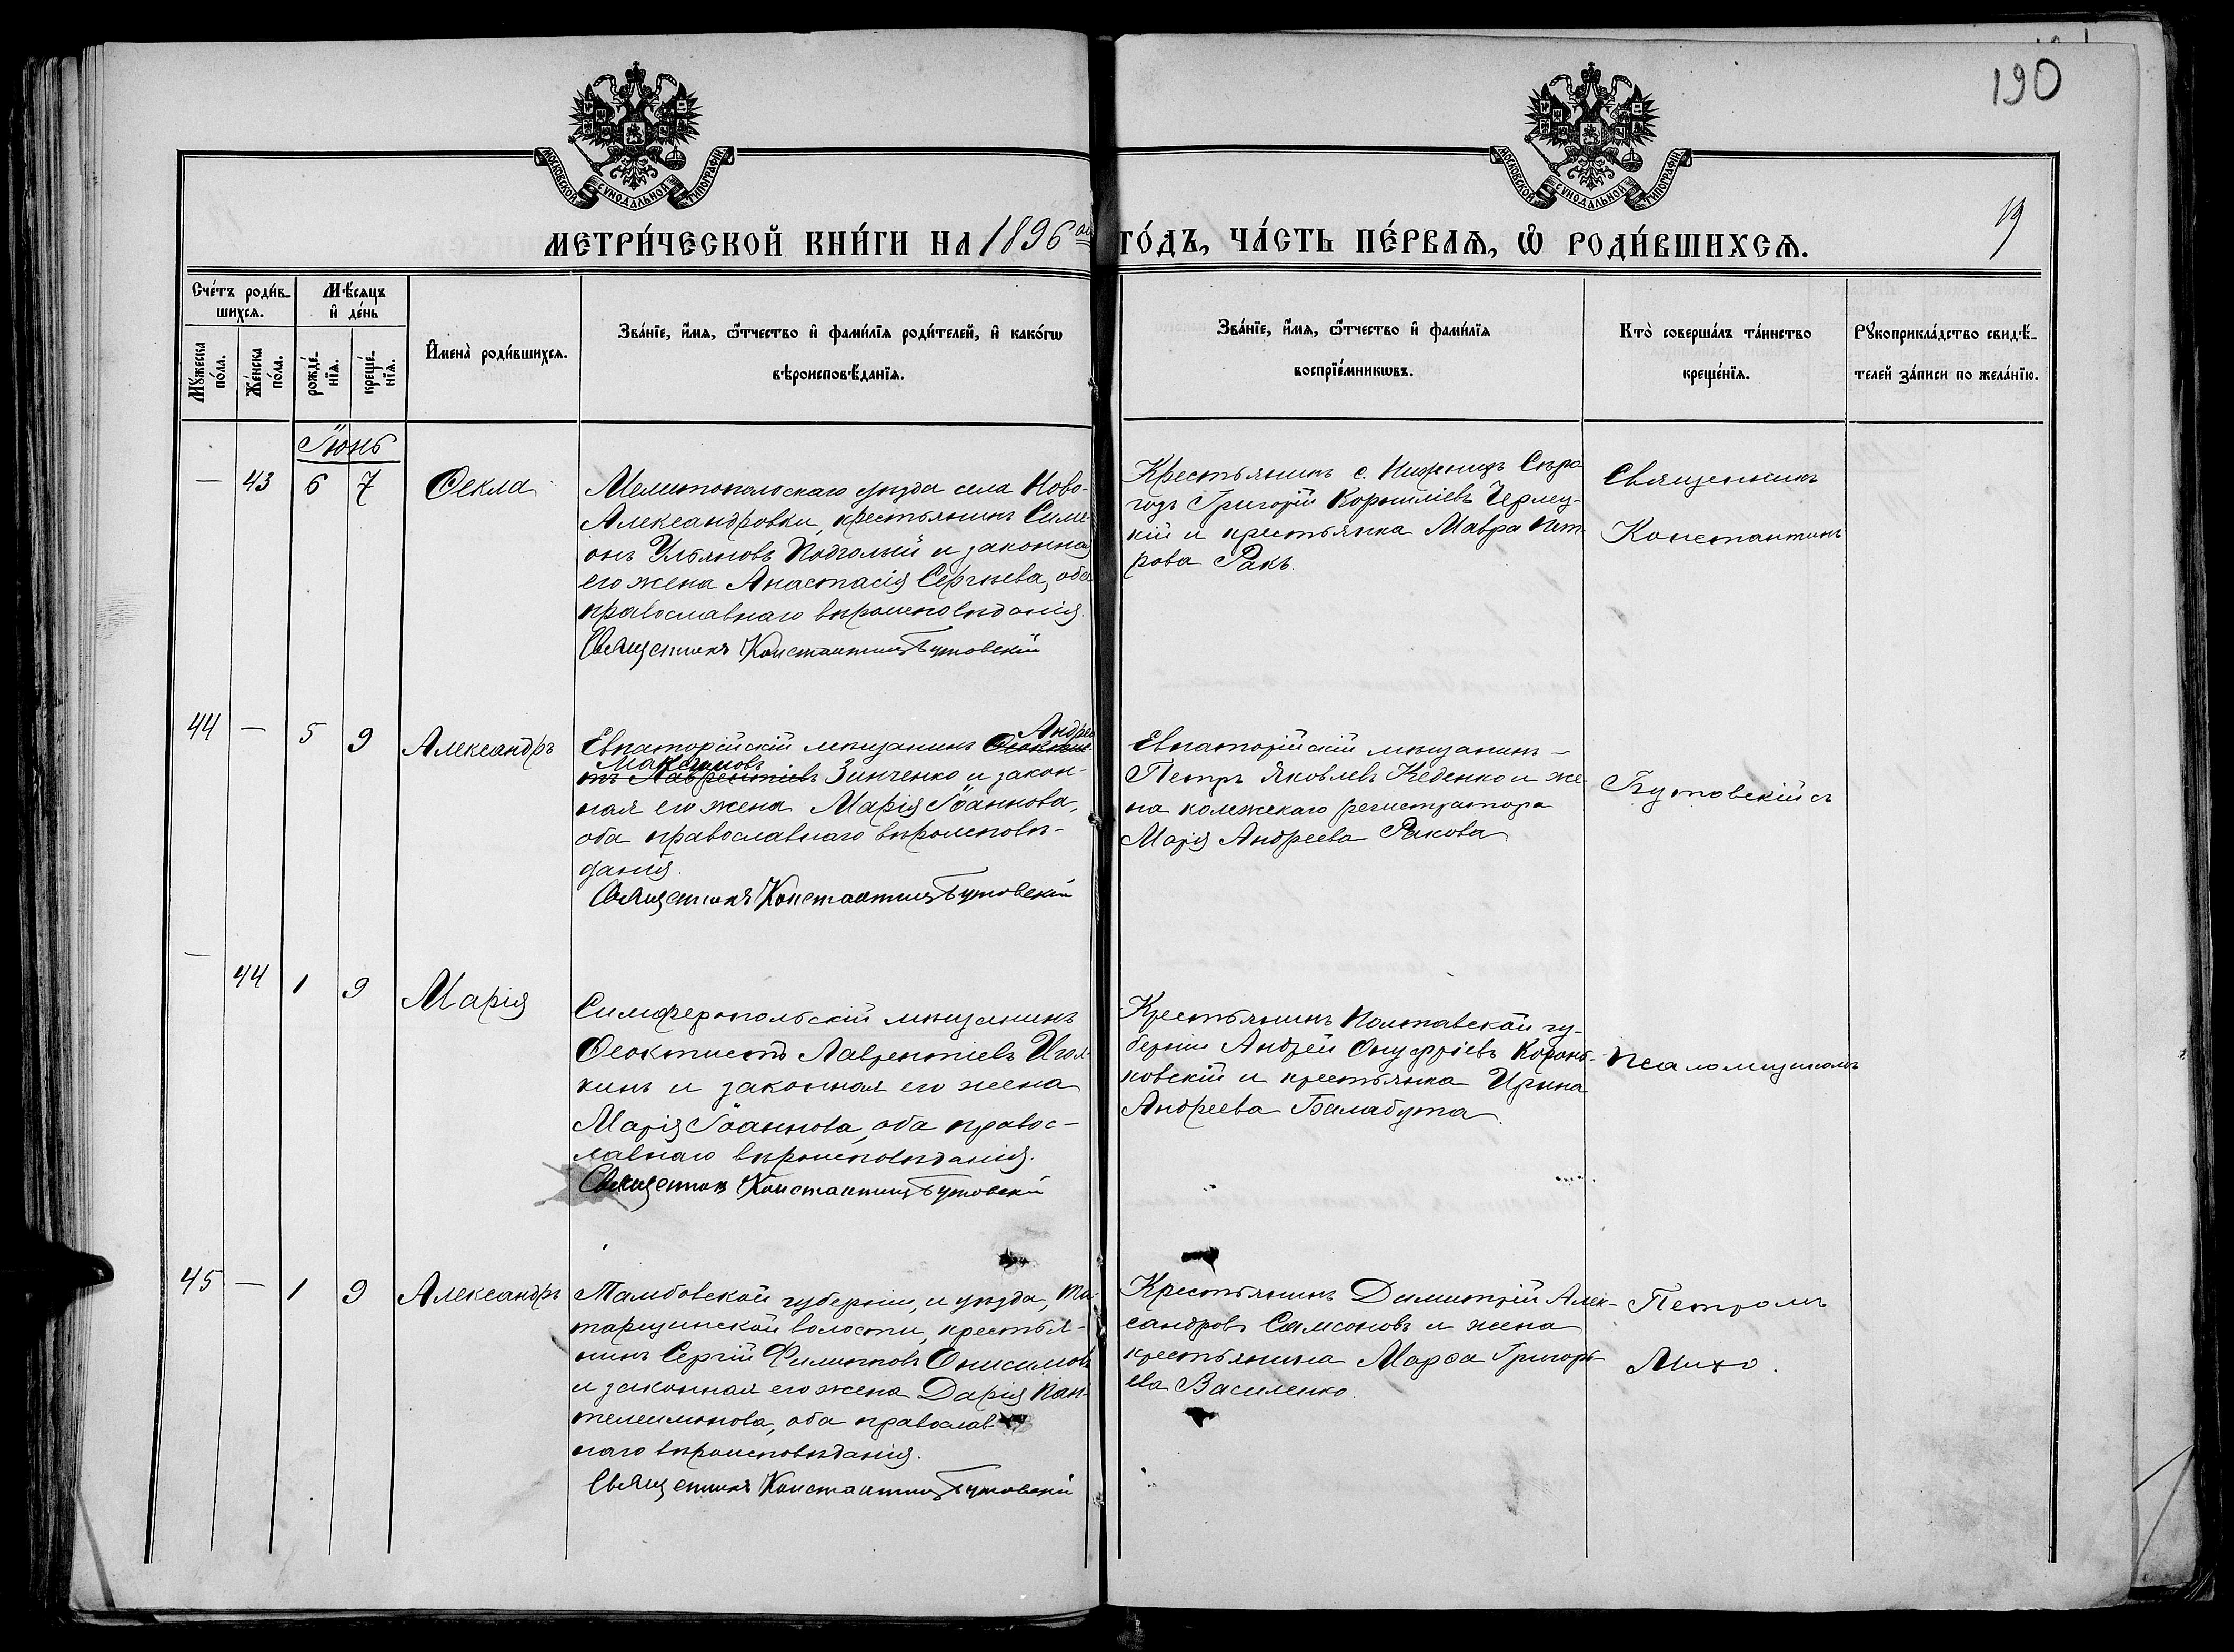 190
МОСКОВСКОЙ СѴНОДАЛЬНОЙ ТИПОГРАФІИ
МОСКОВСКОЙ СѴНОДАЛЬНОЙ ТИПОГРАФІИ
19
МЕТРИ́ЧЕСКОЙ КНИ́ГИ НА 1896 ГО́ДЪ, ЧА́СТЬ ПЕ́РВАѦ, Ѽ РОДИ́ВШИХСѦ.
Сче́тъ роди́в-
шихсѧ.
Мѣ́сѧцъ
и҆ де́нь
И҆мена̀ роди́вшихсѧ.
Зва́нїе, и҆́мѧ, ѻ҆́тчество и҆ фами́лїѧ роди́телей, и҆ како́гѡ
вѣроисповѣ́данїѧ.
Мꙋ́жеска
по́ла.
Же́нска
по́ла.
рожде́-
нїѧ.
креще́-
нїѧ.
Зва́нїе, и҆́мѧ, ѻ҆́тчество и҆ фами́лїѧ
воспрїе́мникѡвъ.
Кто̀ соверша́лъ та́инство
креще́нїѧ.
Рꙋкоприкла́дство свидѣ́-
телей за́писи по жела́нїю.
Іюнь
— 43 6 7 Ѳекла
Мелитопольскаго уѣзда села Ново-
Александровки, крестьянинъ Симе-
онъ Ульяновъ Подголый и законная
его жена Анастасія Сергѣева, оба
православнаго вѣроисповѣданія.
Священникъ Константинъ Бутовскій
Крестьянинъ с. Нижнихъ Сѣро-
гозъ Григорій Корниліевъ Черлец-
кій и крестьянка Мавра Пет-
рова Ракъ.
Священникъ
Константинъ
44 — 5 9 Александръ
Андрей
Евпаторійскій мѣщанинъ Ѳеоктис-
Максимовъ
тъ Лаврентіевъ Зинченко и закон-
ная его жена Марія Іоаннова,
оба православнаго вѣроисповѣ-
данія.
Священникъ Константинъ Бутовскій
Евпаторійскій мѣщанинъ –
Петръ Яковлевъ Кеденко и же-
на колежскаго регистратора
Марія Андреева Ракова
Бутовскій съ
— 44 1 9 Марія
Симферопольскій мѣщанинъ
Ѳеоктистъ Лаврентіевъ Игол-
кинъ и законная его жена
Марія Іоаннова, оба правос-
лавнаго вѣроисповѣданія.
Священникъ Константинъ Бутовскій
Крестьянинъ Полтавской гу-
берніи Андрей Онуфріевъ Корань-
ковскій и крестьянка Ирина
Андреева Балабута.
псаломщикомъ
45 — 1 9 Александръ
Тамбовской губерніи, и уѣзда, Та-
тарщинской волости, крестья-
нинъ Сергій Филипповъ Онисимовъ
и законная его жена Дарія Пан-
телеимонова, оба православ-
наго вѣроисповѣданія.
Священникъ Константинъ Бутовскій
Крестьянинъ Димитрій Алек-
сандровъ Самсоновъ и жена
крестьянина Марѳа Григорь-
ева Василенко.
Петромъ
Михо.